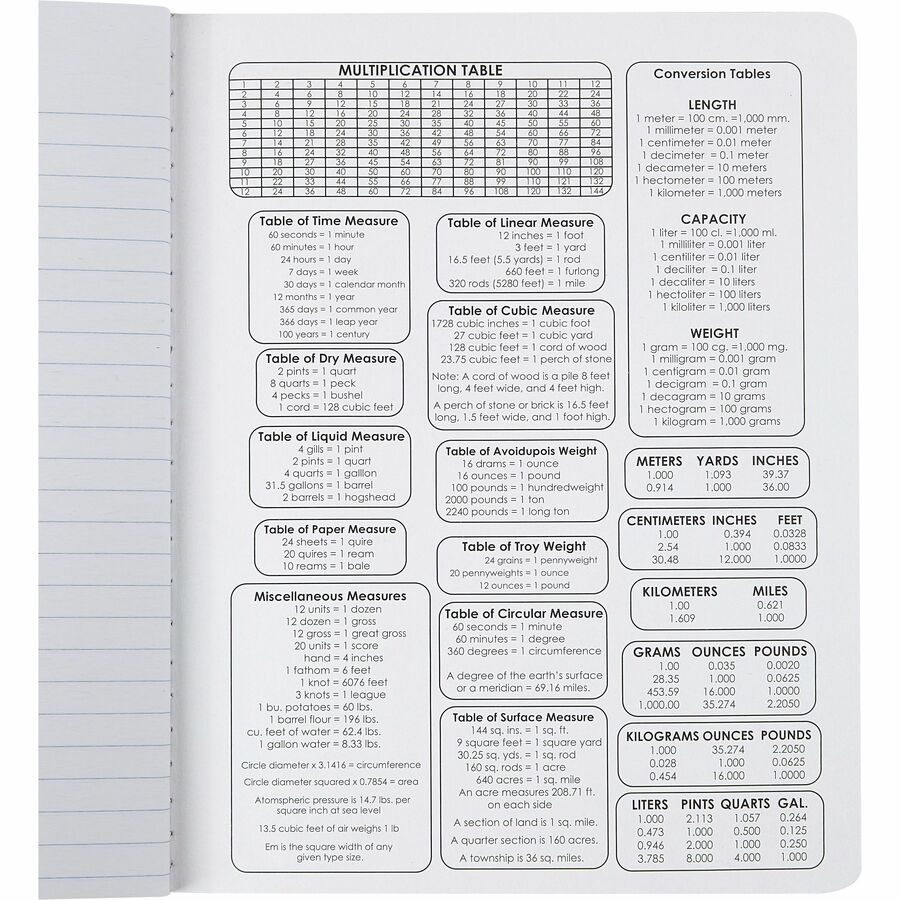 MULTIPLICATION TABLE
1 2 3 4 5 6 7 8 9 10 11 12
2 4 6 8 10 12 14 16 18 20 22 24
3 6 9 12 15 18 21 24 27 30 33 36
4 8 12 16 20 24 28 32 36 40 44 48
5 10 15 20 25 30 35 40 45 50 55 60
6 12 18 24 30 36 42 48 54 60 66 72
7 14 21 28 35 42 49 56 63 70 77 84
8 16 24 32 40 48 56 64 72 80 88 96
9 18 27 36 45 54 63 72 81 90 99 108
10 20 30 40 50 60 70 80 90 100 110 120
11 22 33 44 55 66 77 88 99 110 121 132
12 24 36 48 60 72 84 96 108 120 132 144
Table of Time Measure
60 seconds = 1 minute
60 minutes = 1 hour
24 hours = 1 day
7 days = 1 week
30 days = 1 calendar month
12 months = 1 year
365 days = 1 common year
366 days = 1 leap year
100 years = 1 century
Table of Dry Measure
2 pints = 1 quart
8 quarts = 1 peck
4 pecks = 1 bushel
1 cord = 128 cubic feet
Table of Liquid Measure
4 gills = 1 pint
2 pints = 1 quart
4 quarts = 1 galllon
31.5 gallons = 1 barrel
2 barrels = 1 hogshead
Table of Paper Measure
24 sheets = 1 quire
20 quires = 1 ream
10 reams = 1 bale
Miscellaneous Measures
12 units = 1 dozen
12 dozen = 1 gross
12 gross = 1 great gross
20 units = 1 score
hand = 4 inches
1 fathom = 6 feet
1 knot = 6076 feet
3 knots = 1 league
1 bu. potatoes = 60 lbs.
1 barrel flour = 196 lbs.
cu. feet of water = 62.4 lbs.
1 gallon water = 8.33 lbs.
Circle diameter x 3.1416 = circumference
Circle diameter squared x 0.7854 = area
Atomspheric pressure is 14.7 lbs. per
square inch at sea level
13.5 cubic feet of air weighs 1 lb
Em is the square width of any
given type size.
Table of Linear Measure
12 inches = 1 foot
3 feet = 1 yard
16.5 feet (5.5 yards) = 1 rod
660 feet = 1 furlong
320 rods (5280 feet) = 1 mile
Table of Cubic Measure
1728 cubic inches = 1 cubic foot
27 cubic feet = 1 cubic yard
128 cubic feet = 1 cord of wood
23.75 cubic feet = 1 perch of stone
Note: A cord of wood is a pile 8 feet
long, 4 feet wide, and 4 feet high.
A perch of stone or brick is 16.5 feet
long, 1.5 feet wide, and 1 foot high.
Table of Avoidupois Weight
16 drams = 1 ounce
16 ounces = 1 pound
100 pounds = 1 hundredweight
2000 pounds = 1 ton
2240 pounds = 1 long ton
Table of Troy Weight
24 grains = 1 pennyweight
20 pennyweights = 1 ounce
12 ounces = 1 pound
Table of Circular Measure
60 seconds = 1 minute
60 minutes = 1 degree
360 degrees = 1 circumference
A degree of the earth's surface
or a meridian = 69.16 miles.
Table of Surface Measure
144 sq. ins. = 1 sq. ft.
9 square feet = 1 square yard
30.25 sq. yds. = 1 sq. rod
160 sq. rods = 1 acre
640 acres = 1 sq. mile
An acre measures 208.71 ft.
on each side
A section of land is 1 sq. mile.
A quarter section is 160 acres.
A township is 36 sq. miles.
Conversion Tables
LENGTH
1 meter = 100 cm. =1,000 mm.
1 millimeter = 0.001 meter
1 centimeter = 0.01 meter
1 decimeter = 0.1 meter
1 decameter = 10 meters
1 hectometer = 100 meters
1 kilometer = 1,000 meters
CAPACITY
1 liter = 100 cl. =1,000 ml.
1 milliliter = 0.001 liter
1 centiliter = 0.01 liter
1 deciliter = 0.1 liter
1 decaliter = 10 liters
1 hectoliter = 100 liters
1 kiloliter = 1,000 liters
WEIGHT
1 gram = 100 cg. =1,000 mg.
1 milligram = 0.001 gram
1 centigram = 0.01 gram
1 decigram = 0.1 gram
1 decagram = 10 grams
1 hectogram = 100 grams
1 kilogram = 1,000 grams
METERS YARDS INCHES
1.000 1.093 39.37
0.914 1.000 36.00
CENTIMETERS INCHES FEET
1.00 0.394 0.0328
2.54 1.000 0.0833
30.48 12.000 1.0000
KILOMETERS MILES
1.00 0.621
1.609 1.000
GRAMS OUNCES POUNDS
1.00 0.035 0.0020
28.35 1.000 0.0625
453.59 16.000 1.0000
1,000.00 35.274 2.2050
KILOGRAMS OUNCES POUNDS
1.000 35.274 2.2050
0.028 1.000 0.0625
0.454 16.000 1.0000
LITERS PINTS QUARTS GAL.
1.000 2.113 1.057 0.264
0.473 1.000 0.500 0.125
0.946 2.000 1.000 0.250
3.785 8.000 4.000 1.000